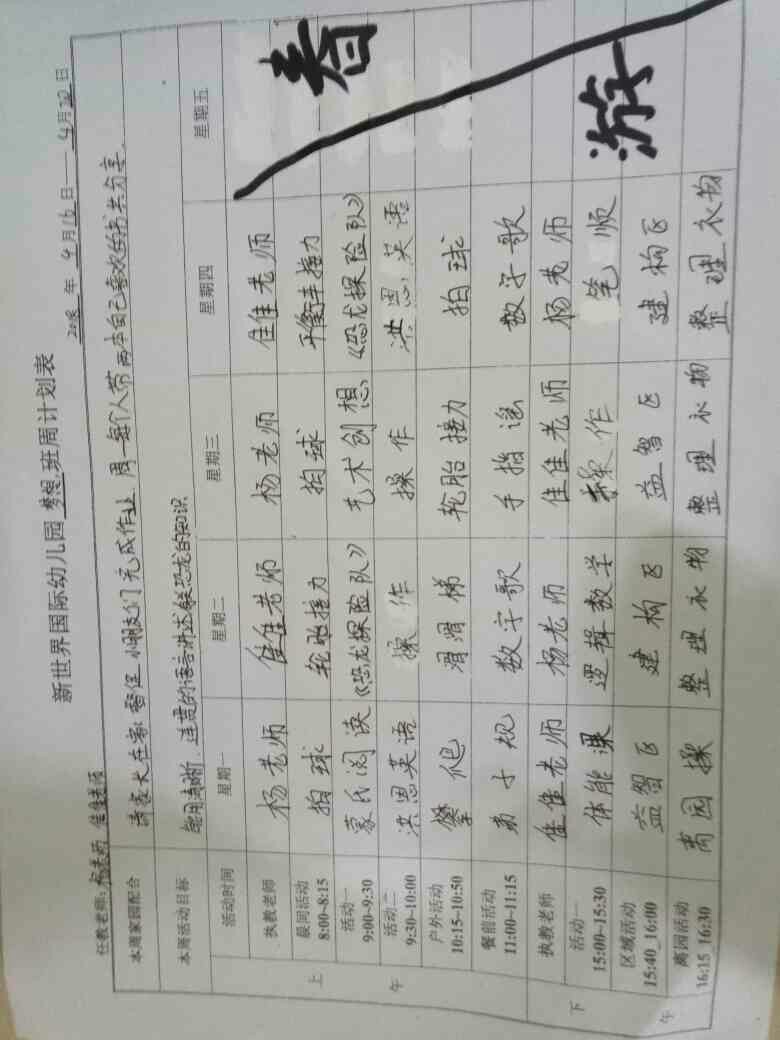 新世界国际幼儿园 梦想 班周计划表
任教老师: 杨老师 佳佳老师 2018 年 4 月 16 日 — 4 月 22 日
本周家园配合 请家长在家督促小朋友们完成作业,周一每个人带两本自己喜欢的书共分享。
本周活动目标 能用清晰、连贯的语言讲述有关恐龙的知识
活动时间 星期一 星期二 星期三 星期四 星期五
上午
执教老师 杨老师 佳佳老师 杨老师 佳佳老师
晨间活动 8:00~8:15 拍球 轮胎接力 拍球 平衡车接力
活动一 9:00~9:30 蒙氏阅读 《恐龙探险队》 艺术创想 《恐龙探险队》
活动二 9:30~10:00 洪恩英语 操作 操作 洪恩英语
户外活动 10:15~10:50 攀爬 滑滑梯 轮胎接力 拍球
餐前活动 11:00~11:15 弟子规 数字歌 手指谣 数字歌
下午
执教老师 佳佳老师 杨老师 佳佳老师 杨老师
活动一 15:00~15:30 体能课 逻辑数学 操作 笔顺
区域活动 15:40_16:00 益智区 建构区 益智区 建构区
离园活动 16:15_16:30 离园操 整理衣物 整理衣物 整理衣物
春游